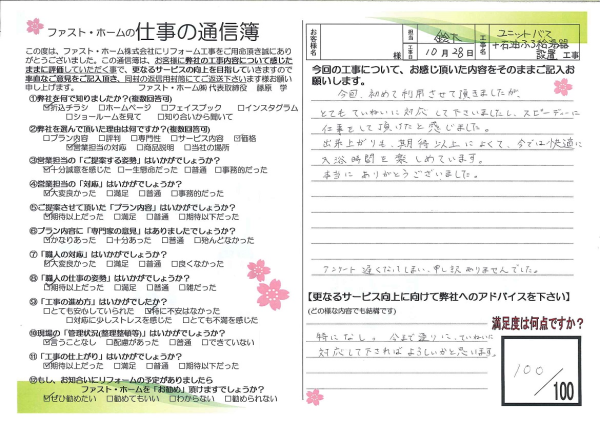 ファスト・ホームの仕事の通信簿
この度は、ファスト・ホーム株式会社にリフォーム工事をご用命頂き誠にあり
がとうございました。この通信簿は、お客様に弊社の工事内容について感じた
ままに評価していただく事で、更なるサービスの向上を目指していきますので
率直なご意見をご記入頂き、同封の返信用封筒にてご返送下さいます様お願い
申し上げます。 ファスト・ホーム㈱ 代表取締役 藤原 学
①弊社を何で知りましたか?(複数回答可)
☑折込チラシ □ホームページ □フェイスブック □インスタグラム
□ショールームを見て □知り合いから聞いて
②弊社を選んで頂いた理由は何ですか?(複数回答可)
□プラン内容 □評判 □専門性 □サービス内容 ☑価格
☑営業担当の対応 □商品説明 □当社の場所
③営業担当の「ご提案する姿勢」はいかがでしょうか?
☑十分誠意を感じた □一生懸命だった □普通 □事務的だった
④営業担当の「対応」はいかがでしょうか?
☑大変良かった □満足 □普通 □事務的だった
⑤ご提案させて頂いた「プラン」はいかがでしょうか?
☑期待以上だった □満足 □普通 □期待以下だった
⑥プラン内容に「専門家の意見」はありましたでしょうか?
☑かなりあった □十分あった □普通 □殆んどなかった
⑦「職人の対応」はいかがでしょうか?
☑大変良かった □満足 □普通 □良くなかった
⑧「職人の仕事の姿勢」はいかがでしょうか?
☑期待以上だった □満足 □普通 □雑だった
⑨「工事の進め方」はいかがでしたか?
□とても安心していられた ☑特に不安はなかった
□対応に少しストレスを感じた □とても不満を感じた
⑩現場の「管理状況(整理整頓等)」はいかがでしょうか?
☑言うことなし □配慮があった □普通 □できていない
⑪「工事の仕上がり」はいかがでしょうか?
☑期待以上だった □満足 □普通 □期待以下だった
⑫もし、お知合いにリフォームの予定がありましたら
ファスト・ホームを「お勧め」頂けますでしょうか?
☑ぜひ勧めたい □勧めてもいい □わからない □勧められない
お客様名 様
担当 鈴下
工事日 10月28日
工事名 ユニットバス
+石油ふろ給湯器
設置 工事
今回の工事について、お感じ頂いた内容をそのままご記入お
願いします。
今回、初めて利用させて頂きましたが、
とてもていねいに対応して下さいましたし、スピーディーに
仕事をして頂けたと感じました。
出来上がりも、期待以上によくて、今では快適に
入浴時間を楽しめています。
本当にありがとうございました。
アンケート遅くなってしまい、申し訳ありませんでした。
【更なるサービス向上に向けて弊社へのアドバイスを下さい】
(どの様な内容でも結構です)
特になし。今まで通りに、ていねいに
対応して下さればよろしいかと思います。
満足度は何点ですか?
100/100